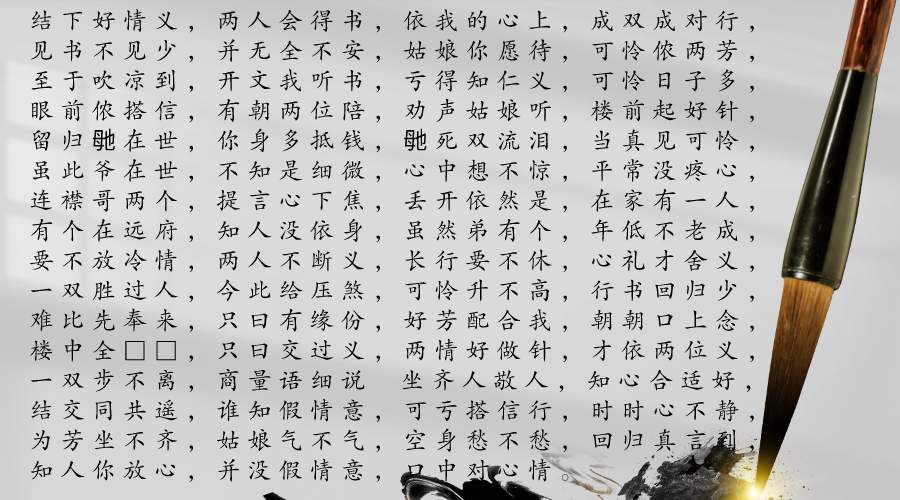 结下好情义，两人会得书，依我的心上，成双成对行，
见书不见少，并无全不安，姑娘你愿待，可怜侬两芳，
至于吹凉到，开文我听书，亏得知仁义，可怜日子多，
眼前侬搭信，有朝两位陪，劝声姑娘听，楼前起好针，
留归毑在世，你身多抵钱，毑死双流泪，当真见可怜，
虽此爷在世，不知是细微，心中想不惊，平常没疼心，
连襟哥两个，提言心下焦，丢开依然是，在家有一人，
有个在远府，知人没依身，虽然弟有个，年低不老成，
要不放冷情，两人不断义，长行要不休，心礼才舍义，
一双胜过人，今此给压煞，可怜升不高，行书回归少，
难比先奉来，只曰有缘份，好芳配合我，朝朝口上念，
楼中全□□，只曰交过义，两情好做针，才依两位义，
一双步不离，商量语细说 坐齐人敬人，知心合适好，
结交同共遥，谁知假情意，可亏搭信行，时时心不静，
为芳坐不齐，姑娘气不气，空身愁不愁，回归真言到，
知人你放心，并没假情意，口中对心情。